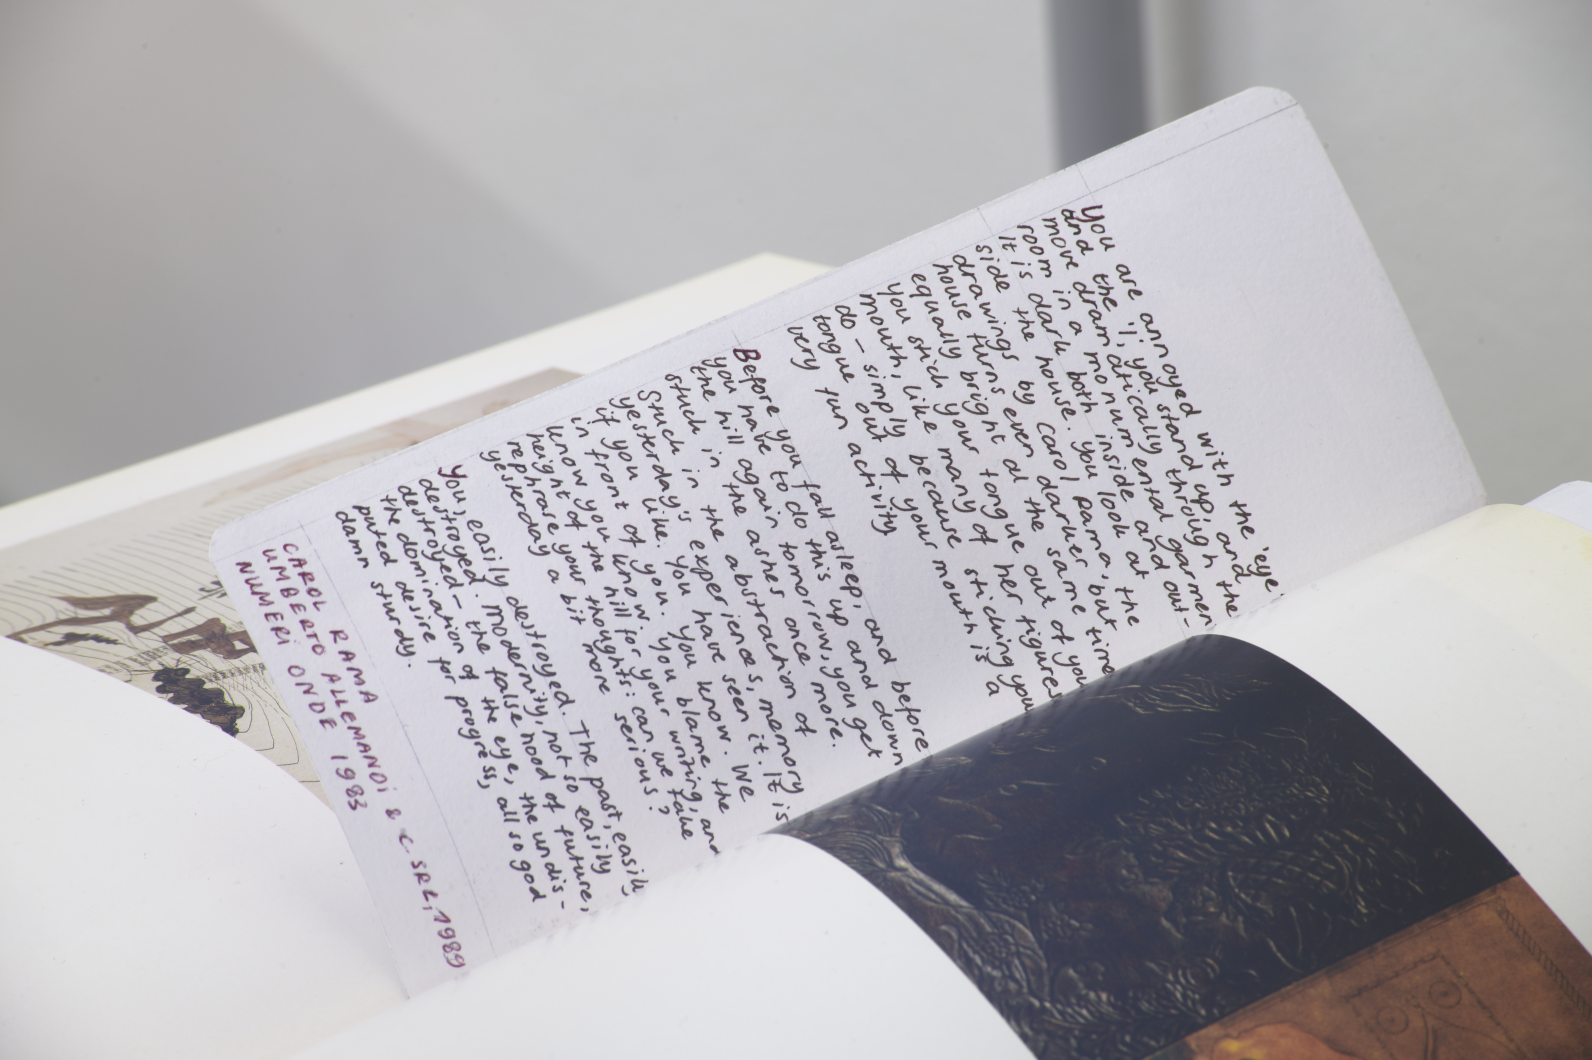 You are annoyed with the 'eye'
and the 'I', you stand up, and
move dramatically through the
room in a monumental garmen
It is dark both inside and out-
side the house. You look at the
drawings by Carol Rama, but
house turns even darker time
equally bright at the same
you stick your tongue out of you
mouth, like many of her figures
do – simply because sticking you
tongue out of your mouth is a
very fun activity
Before you fall asleep, and before
you have to do this up and down
the hill again tomorrow, you get
stuck in the ashes once more.
Stuck in the abstraction of
yesterday's experiences, memory
if you like. You have seen it. It is
in front of you. You know. We
know you know. You blame the
height of the hill for your writing, and
rephrase your thoughts: can we take
yesterday a bit more serious?
You, easily destroyed. The past, easily
destroyed. Modernity, not so easily
destroyed – the false hood of future,
the domination of the eye, the undis-
puted desire for progress, all so god
damn sturdy.
CAROL RAMA
UMBERTO ALLEMANDi & C. SRL, 1989
NUMERI ONDE 1983